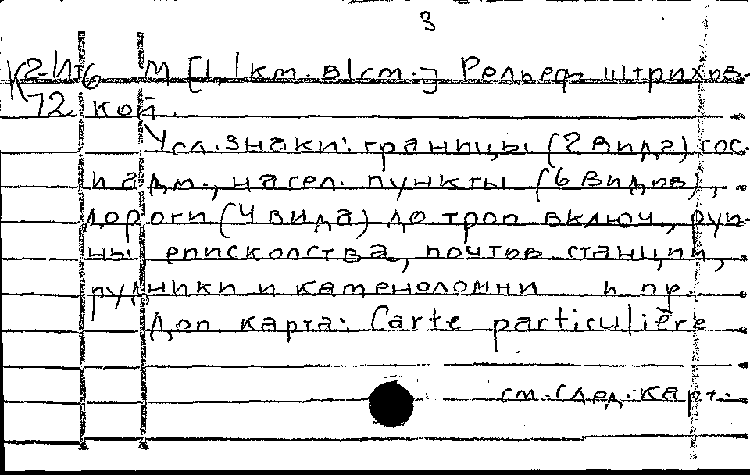 3
К2-Ит6 М [1,1км. в 1см.] Рельеф штрихов-
72 кой.
Усл. знаки: границы (2 вида) гос.
и адм., насел. пункты (6 видов),
дороги (4 вида) до троп включ, руи-
ны епископства, почтов. станции,
рудники и каменоломни и пр.
Доп карта: Carte particulière
см. след. карт.